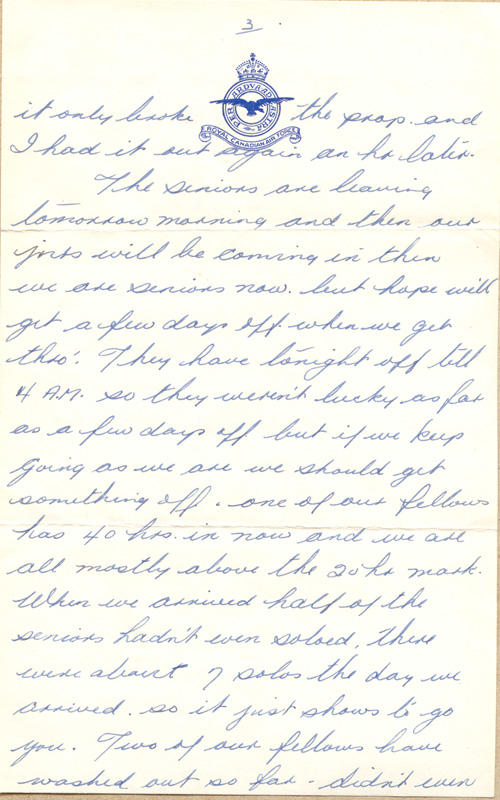 3
PER ARDUA AD ASTRA
ROYAL CANADIAN AIR FORCE
it only broke the prop. and
I had it out again an hr later.
The seniors are leaving
tomorrow morning and then our
jnrs will be coming in then
we are seniors now. but hope will
get a few days off when we get
thro'. They have tonight off till
4 A.M. so they weren't lucky as far
as a few days off but if we keep
going as we are we should get
something off. one of our fellows
has 40 hrs. in now and we are
all mostly above the 20 hr mark.
When we arrived half of the
seniors hadn't even soloed, there
were about 7 solos the day we
arrived. so it just shows to go
you. Two of our fellows have
washed out so far - didn't even